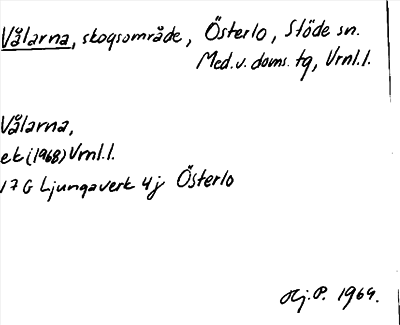 Vålarna, skogsområde, Österlo, Stöde sn.
Med.v. doms. tg, Vrnl.l.
Vålarna,
ek (1968) Vrnl.l.
17 G Ljungaverk 4j Österlo
Hj.P. 1969.